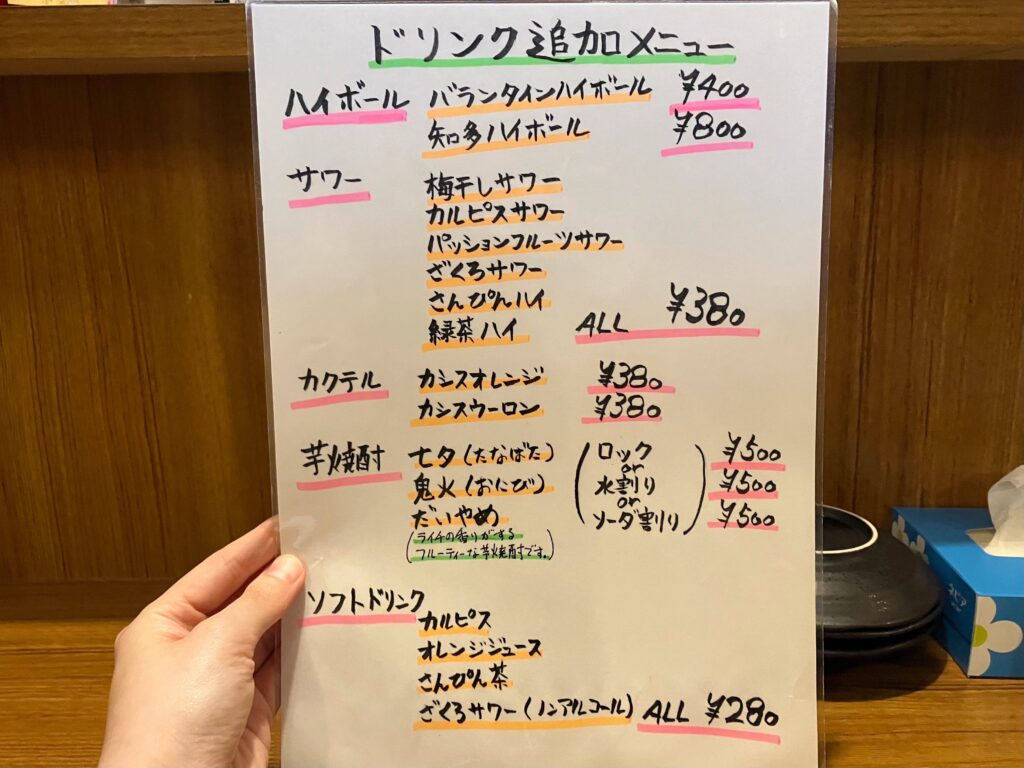 ドリンク追加メニュー
ハイボール バランタインハイボール ¥400
知多ハイボール ¥800
サワー 梅干しサワー
カルピスサワー
パッションフルーツサワー
ざくろサワー
さんぴんハイ
緑茶ハイ ALL ¥380
カクテル カシスオレンジ ¥380
カシスウーロン ¥380
芋焼酎 七夕(たなばた) (ロック ¥500
or
鬼火(おにび) 水割り ¥500
or
だいやめ ソーダ割り) ¥500
(ライチの香りがする
フルーティーな芋焼酎です。)
ソフトドリンク
カルピス
オレンジジュース
さんぴん茶
ざくろサワー(ノンアルコール) ALL ¥280
ネピア